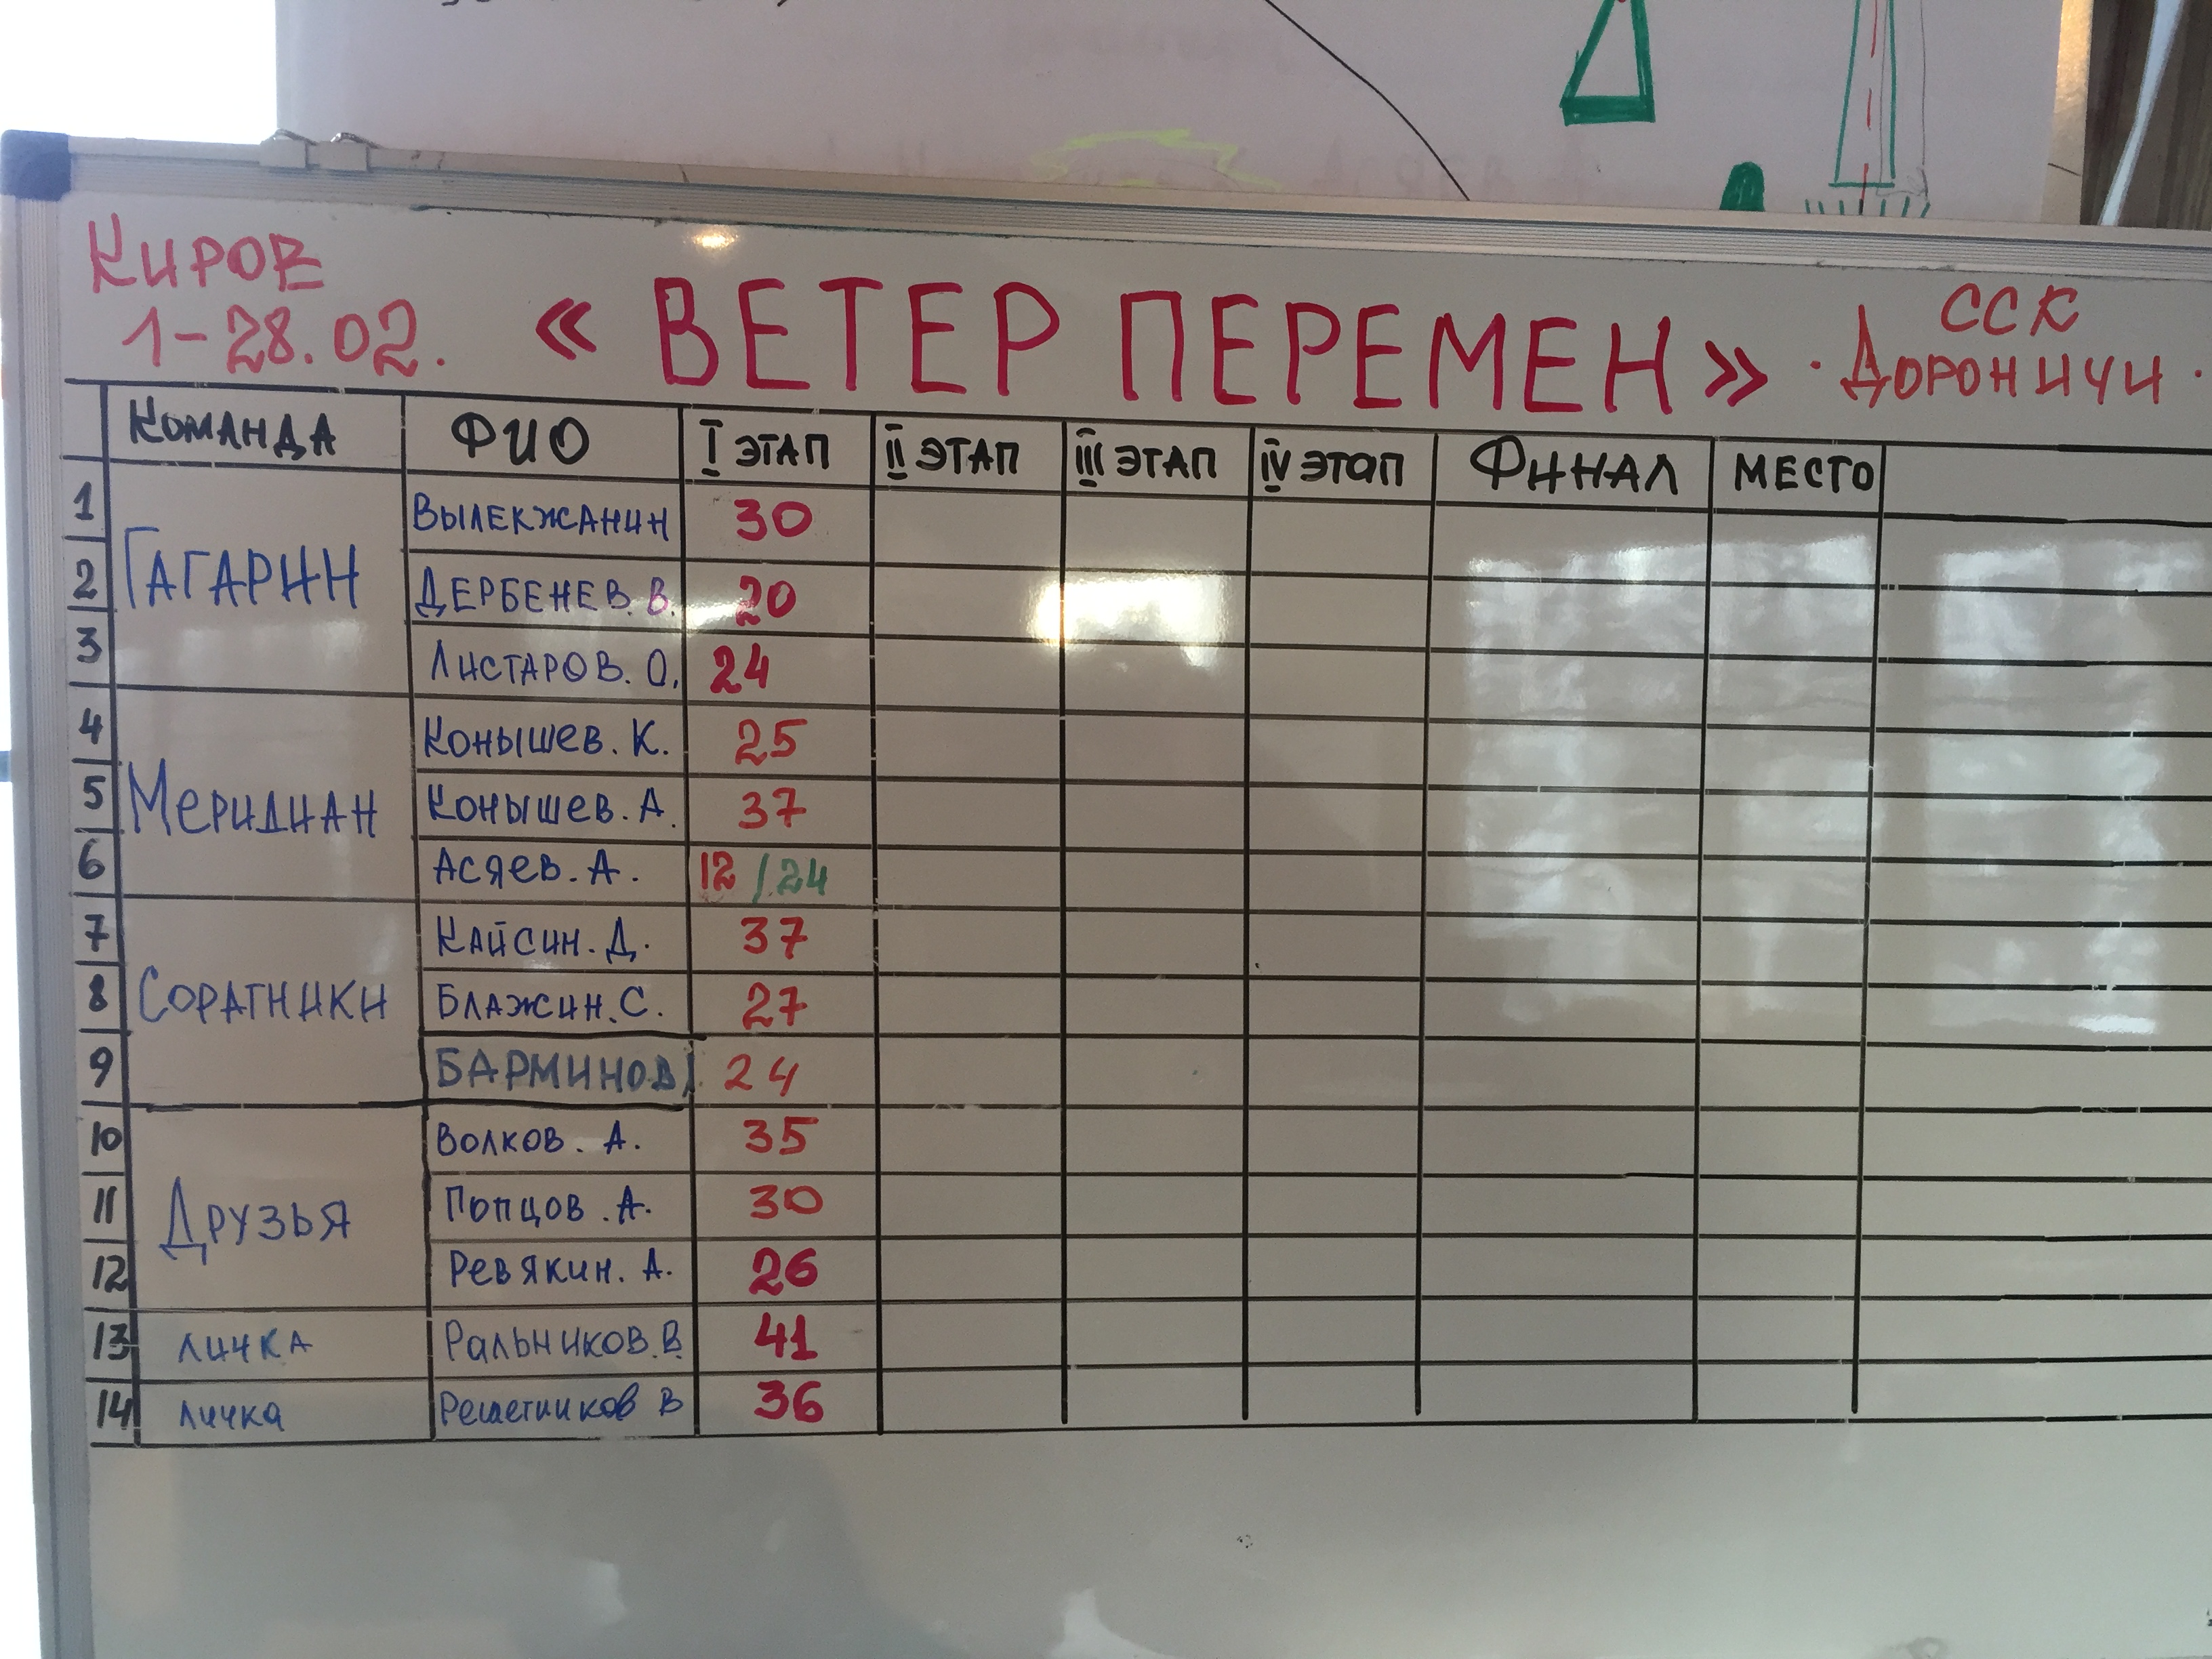 КИРОВ
1-28.02.
« ВЕТЕР ПЕРЕМЕН »
ССК
· ДОРОНИЧИ ·
КОМАНДА ФИО I ЭТАП II ЭТАП III ЭТАП IV ЭТАП ФИНАЛ МЕСТО
1 ГАГАРИН ВЫЛЕКЖАНИН 30
2 ДЕРБЕНЕВ. В. 20
3 ЛИСТАРОВ. О. 24
4 МЕРИДИАН КОНЫШЕВ. К. 25
5 КОНЫШЕВ. А. 37
6 АСЯЕВ. А. 12 / 24
7 СОРАТНИКИ КАЙСИН. Д. 37
8 БЛАЖИН. С. 27
9 24
10 ДРУЗЬЯ ВОЛКОВ. А. 35
11 ПОПЦОВ. А. 30
12 РЕВЯКИН. А. 26
13 ЛИЧКА РАЛЬНИКОВ. В 41
14 ЛИЧКА РЕШЕТНИКОВ В 36